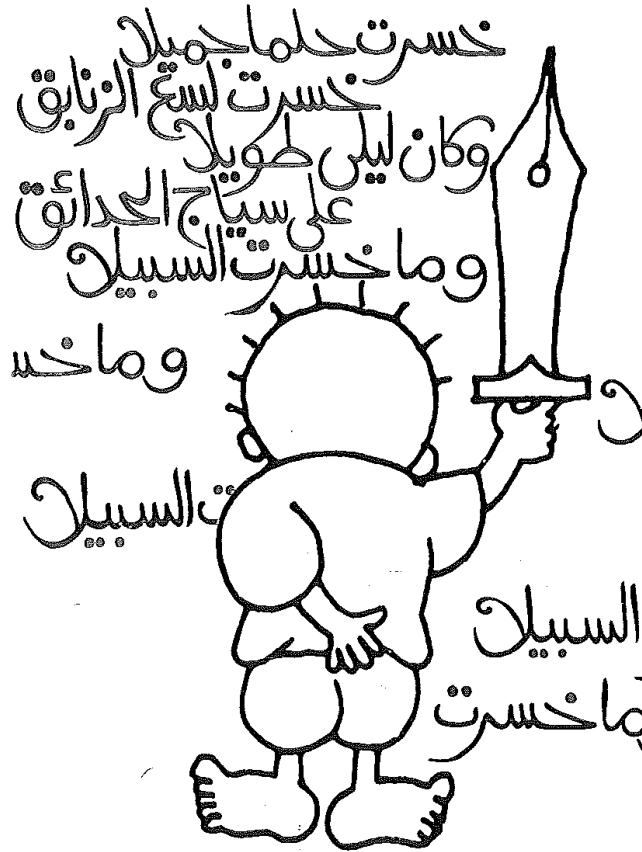 خسرت حلما جميلا
خسرت لسع الزنابق
وكان ليلي طويلا
على سياج الحدائق
وما خسرت السبيلا
وما خس
ت السبيلا
السبيلا
ما خسرت